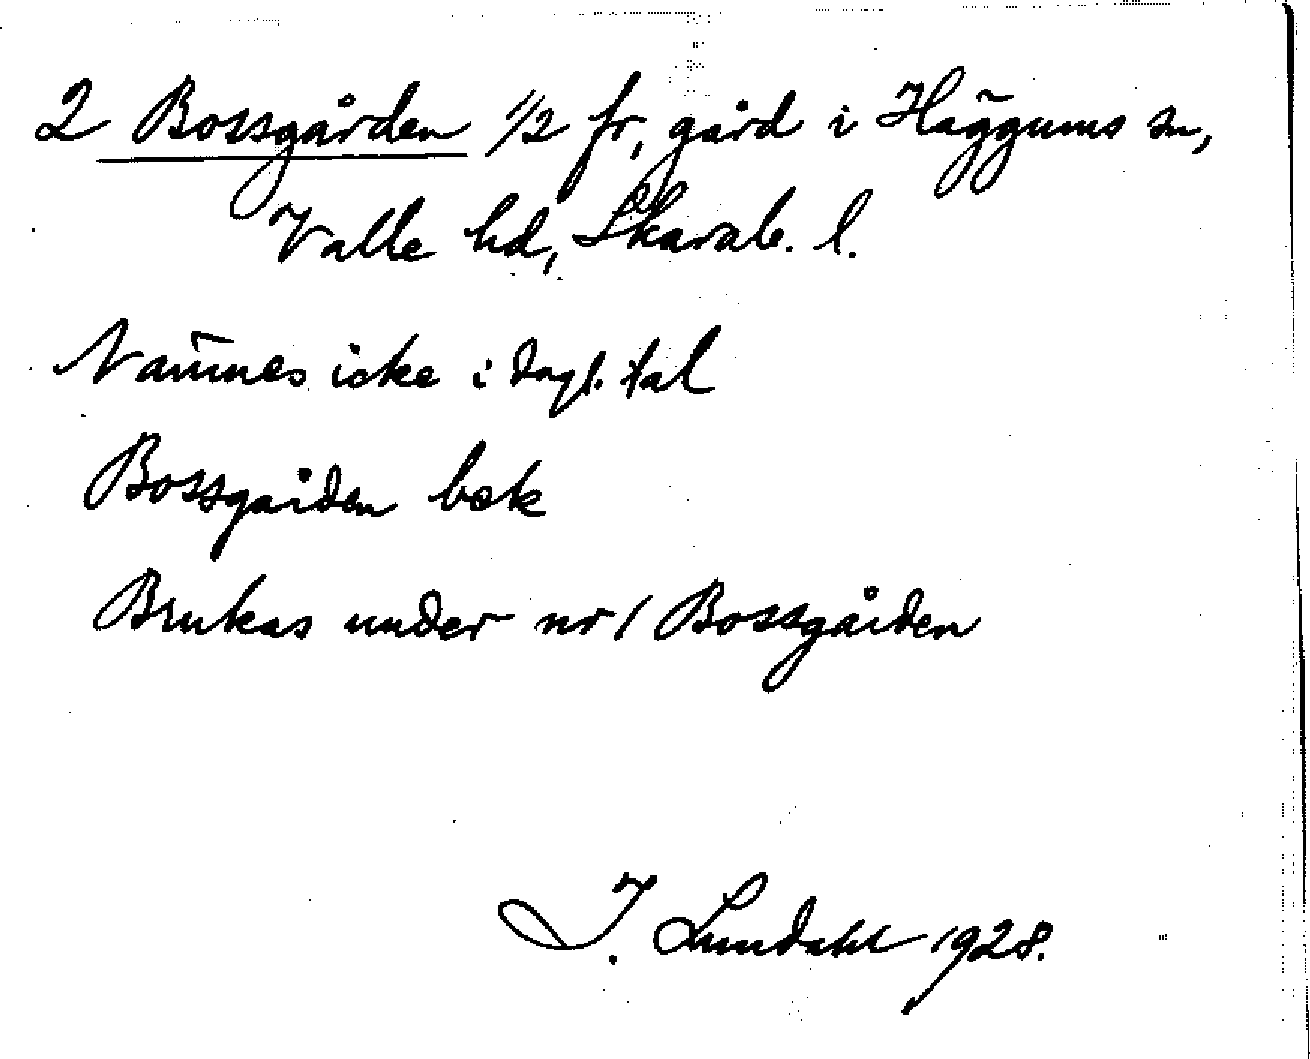 2 Bossgården 1/2 fr, gård i Häggums sn,
Valle hd, Skarab. l.
Namnes icke i dagl. tal
Bossgården bok
Brukas under nr 1 Bossgården
I. Lundahl 1928.